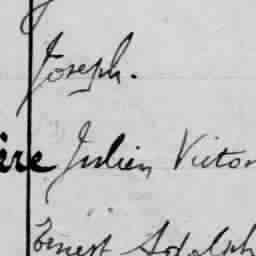 Joseph.
ère Julien Victor
Ernest Adolph